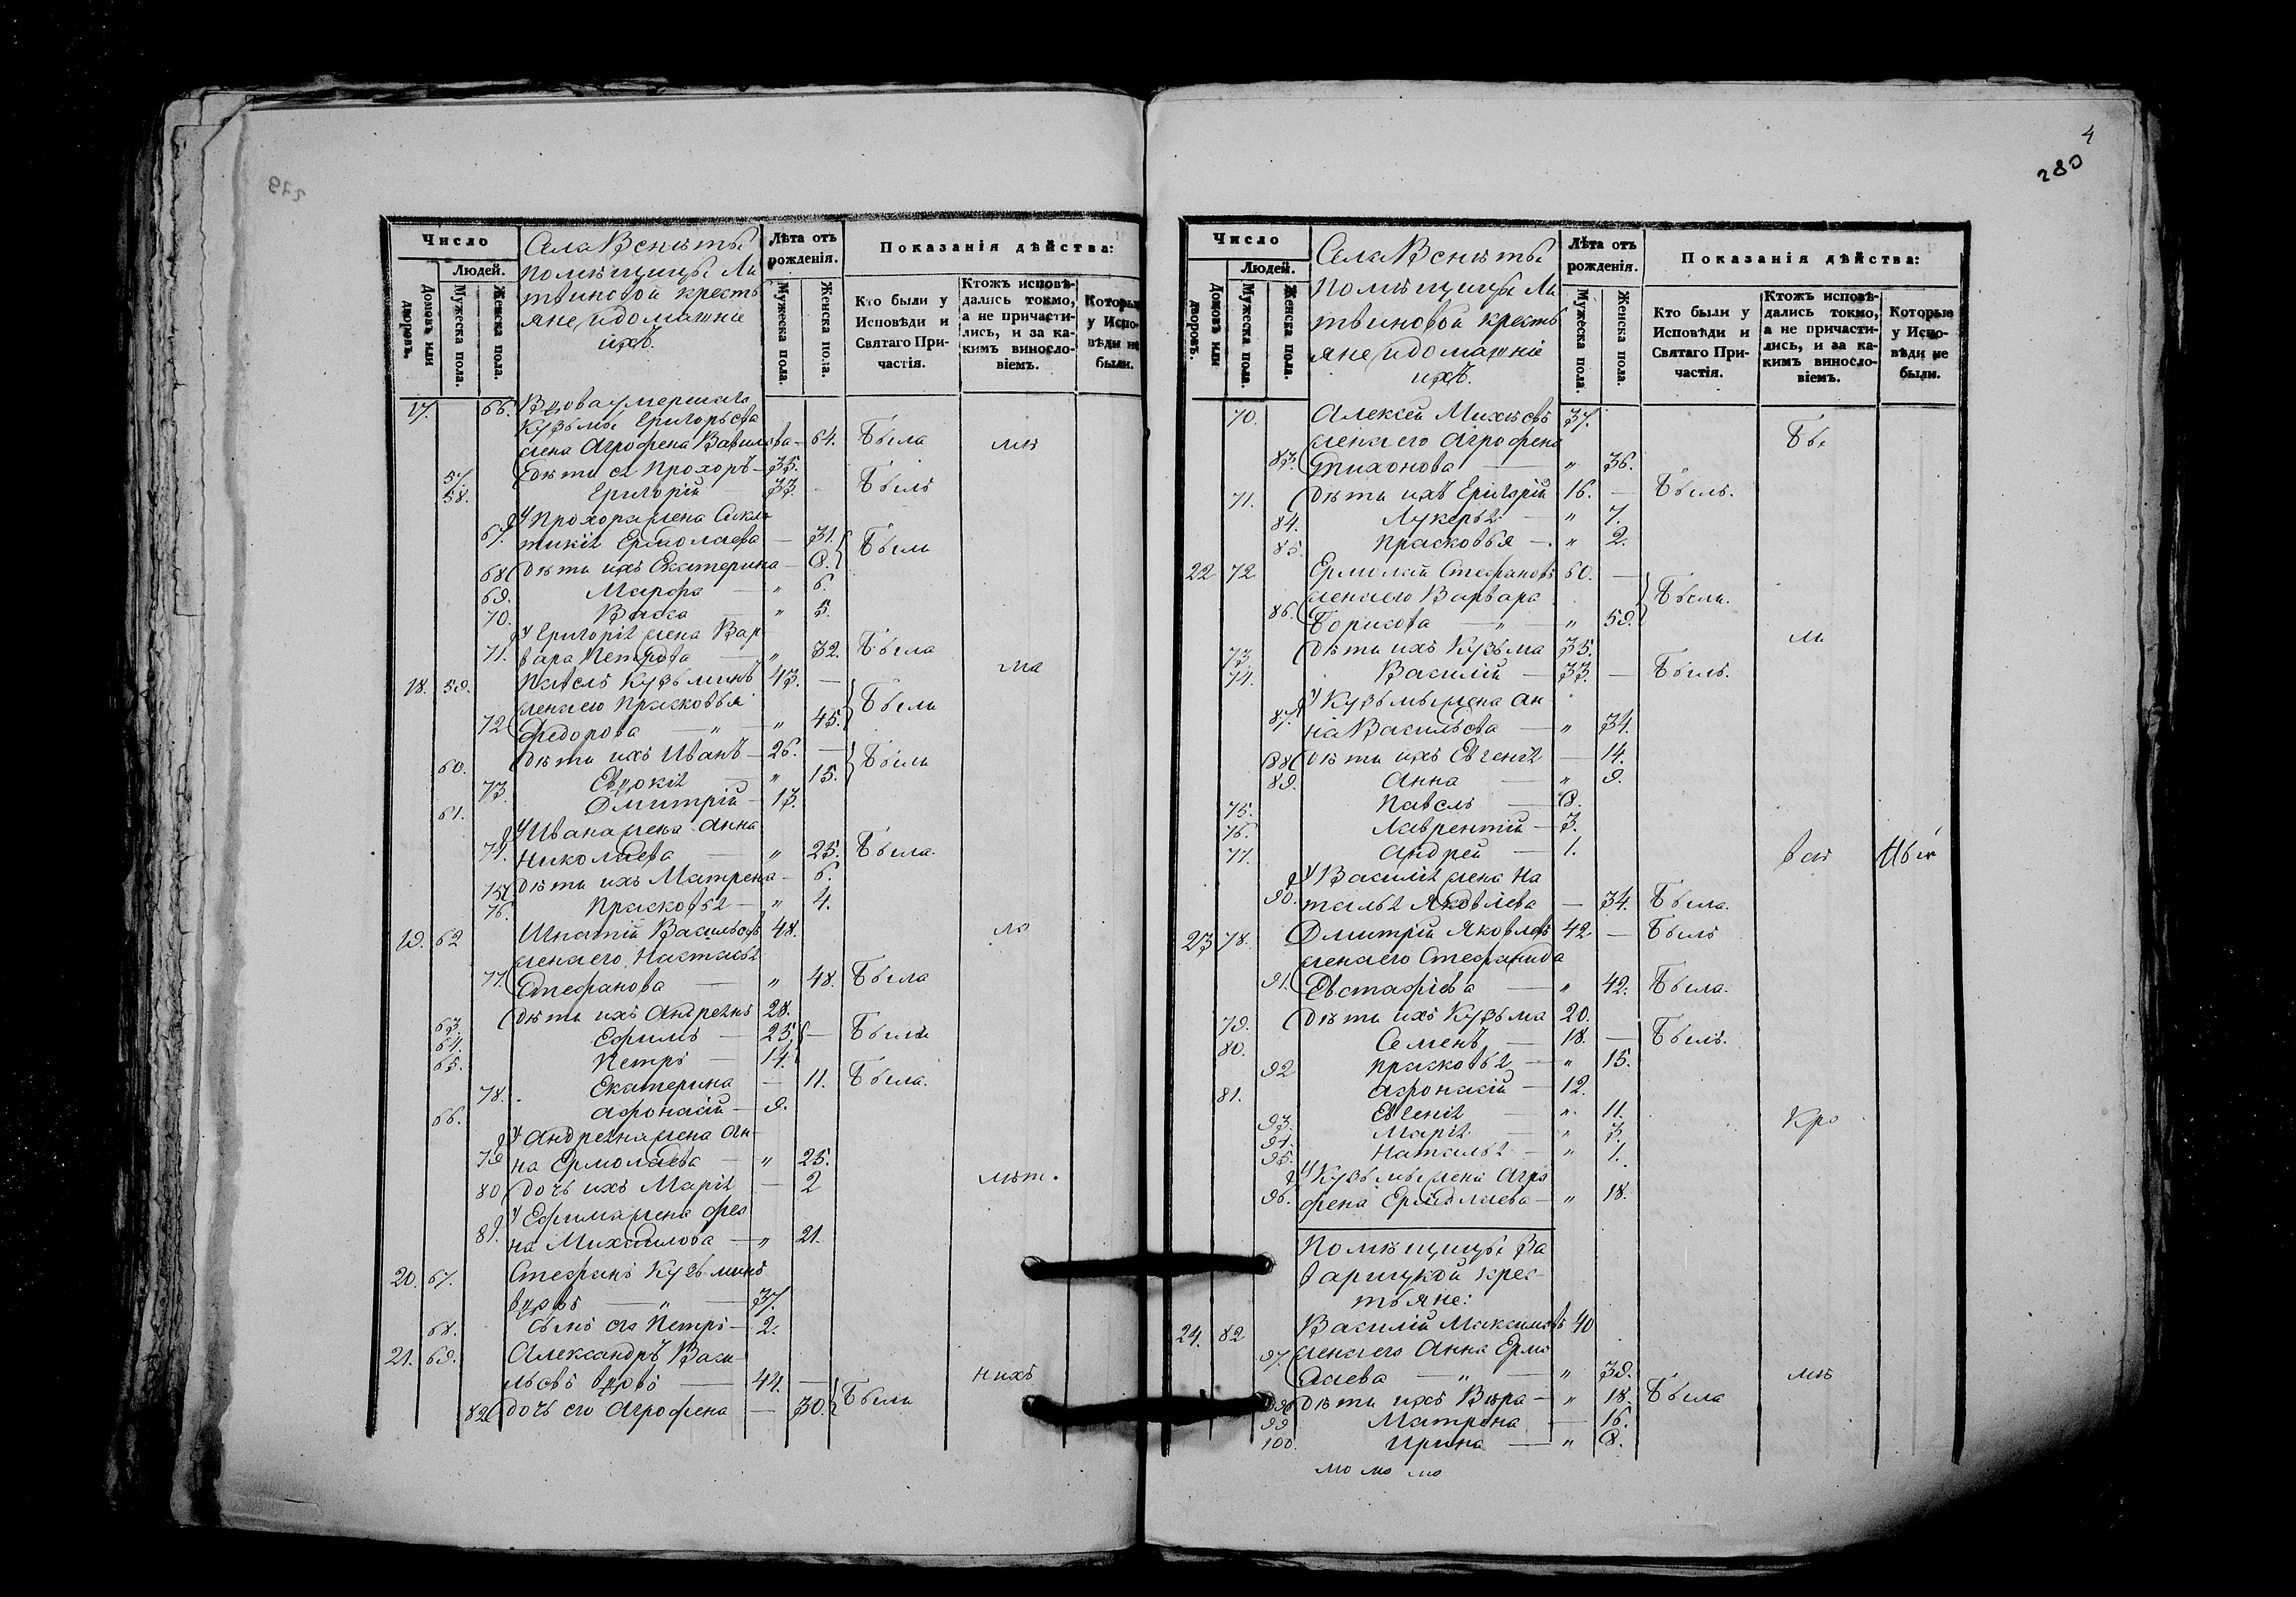 4
280
Число
Людей.
Домовъ или дворовъ.
Мужеска пола.
Женска пола.
Села Всниты
помѣщицы Ли
твиновой кресть
яне и домашніе
ихъ.
Лѣта отъ рожденія.
Мужеска пола.
Женска пола.
Показанія дѣйства:
Кто были у Исповѣди и Святаго Причастія.
Ктожъ исповѣдались токмо, а не причастились, и за какимъ винословіемъ.
Которые у Исповѣди не были.
17. 66. Вдова умершаго
Кузьмы Григорьева
жена Агрофена Вавилова — 64. Была
57. Дѣти ея Прохоръ — 35.
58. Григорій 33. — Былъ
У Прохора жена Сикли
67. тикія Ермолаева — 31. Были
68 дѣти ихъ Екатерина — 8.
69. Марфа — " 6.
70. Васса " 5.
У Григорія жена Вар
71. вара Петрова — " 32. Была
18. 59. Павелъ Кузьминъ 43. —
жена его Прасковья
72 Федорова — " — " 45. Были
60. дѣти ихъ Иванъ — 26. —
73. Евдокія " 15. Были
61. Дмитрій — 13.
У Ивана жена Анна
74. Николаева — " 25. Была.
75 дѣти ихъ Матрена — 6.
76. Прасковья — " 4.
19. 62 Игнатій Васильевъ 48.
жена его Настасья
77. Стефанова — " 48. Была
63. дѣти ихъ Андреянъ 28.
64. Ефимъ — 25. — Были
65. Петръ — 14.
78. Екатерина — 11. Была.
66. Афонасій — 9.
У Андреяна жена Ан-
79 на Ермолаева — " 25.
80 дочь ихъ Марія — 2
У Ефима жена Фео
81. на Михайлова — " 21.
20. 67. Стефанъ Кузьминъ
вдовъ — " — 37.
68. сынъ его Петръ — 2.
21. 69. Александръ Васи-
льевъ вдовъ — 44. —
82 дочь его Агрофена — 30. Были
Число
Людей.
Домовъ или дворовъ.
Мужеска пола.
Женска пола.
Села Всниты
Помѣщицы Ли
твиновой кресть
яне и домашніе
ихъ.
Лѣта отъ рожденія.
Мужеска пола.
Женска пола.
Показанія дѣйства:
Кто были у Исповѣди и Святаго Причастія.
Ктожъ исповѣдались токмо, а не причастились, и за какимъ винословіемъ.
Которые у Исповѣди не были.
70. Алексей Михѣевъ 37.
жена его Агрофена
83. Тихонова — " 36.
71. дѣти ихъ Григорій 16. — Былъ.
84. Лукерья — " 7.
85. Прасковья — " 2.
22 72. Ермолай Стефановъ 60. —
жена его Варвара
86. Борисова — " — " 59. Были.
73. дѣти ихъ Кузьма 35.
74. Василій — 33. — Былъ.
У Кузьмы жена Ан
87. на Васильева — " 34.
88 дѣти ихъ Евгенія — 14.
89. Анна — " 9.
75. Павелъ — 8.
76. Лаврентій — 3.
77. Андрей — 1.
У Василія жена На
90. талья Яковлева — 34. Была.
23 78. Дмитрій Яковлевъ 42 — Былъ
жена его Стефанида
91. Евстафіева — " 42. Была.
79. дѣти ихъ Кузьма 20.
80. Семенъ — 18. — Былъ.
92 Прасковья — " 15.
81. Афонасій — 12.
93. Евгенія — " 11.
94. Марія — " 3.
95. Наталья — " 1.
У Кузьмы жена Агро
96. фена Ермолаева — " 18.
Помѣщицы За
варицкой крес-
тьяне:
24. 82 Василій Максимовъ 40
97. жена его Анна Ермо
лаева — " — " 39.
98 дѣти ихъ Вѣра — " 18. Была
99 Матрона — 16.
100. Ирина — " 8.